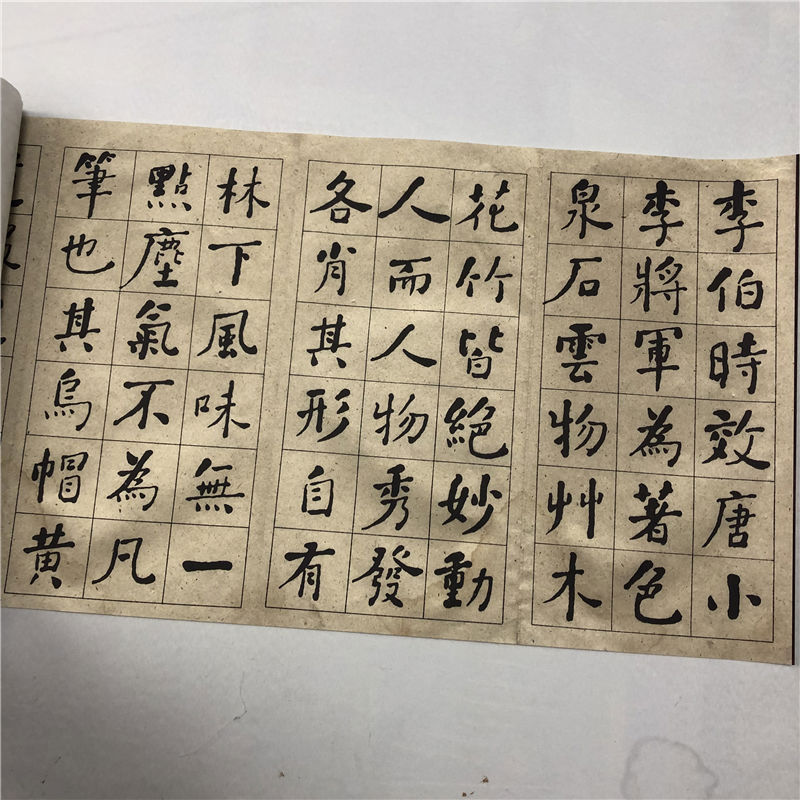 李伯時效唐小
李將軍為著色
泉石雲物艸木
花竹皆絕妙動
人而人物秀發
各肖其形自有
林下風味無一
點塵氣不為凡
筆也其烏帽黄